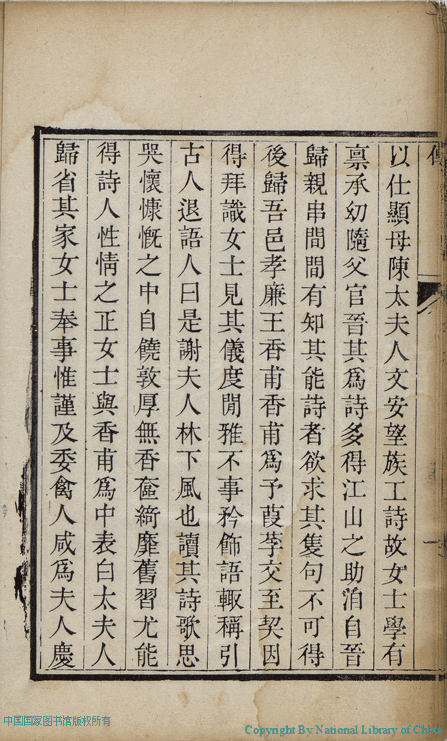 以仕顯母陳太夫人文安望族工詩故女士學有
禀承幼隨父官晉其為詩多得江山之助洎自晉
歸親串間間有知其能詩者欲求其隻句不可得
後歸吾邑孝廉王香甫香甫為予葭莩交至契因
得拜識女士見其儀度閒雅不事矜飾語輙稱引
古人退語人曰是謝夫人林下風也讀其詩歌思
哭懷慷慨之中自饒敦厚無香奩綺靡舊習尤能
得詩人性情之正女士與香甫為中表白太夫人
歸省其家女士奉事惟謹及委禽人咸為夫人慶
中国国家图书馆版权所有
Copyright By National Library of China